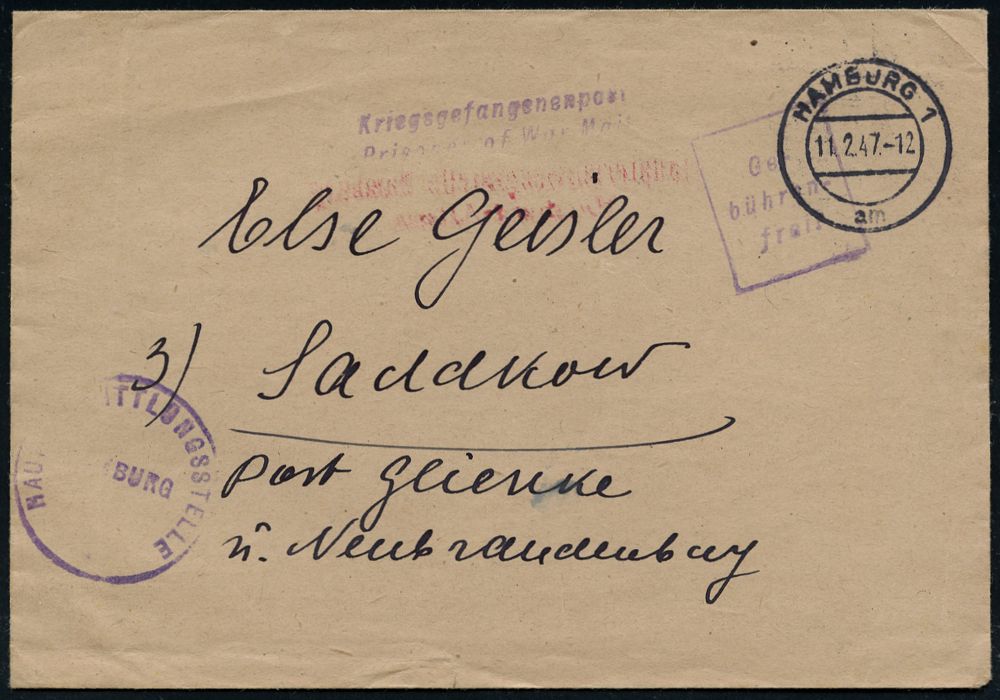 Kriegsgefangenenpost
Prisoner of War Mail
HAMBURG 1
11.2.47.-12
am
Ge-
bühren-
frei!
Else Geisler
3) Saddkow
Post Glienke
ü. Neubrandenburg
TTLUNGSSTELLE
BURG
HAU